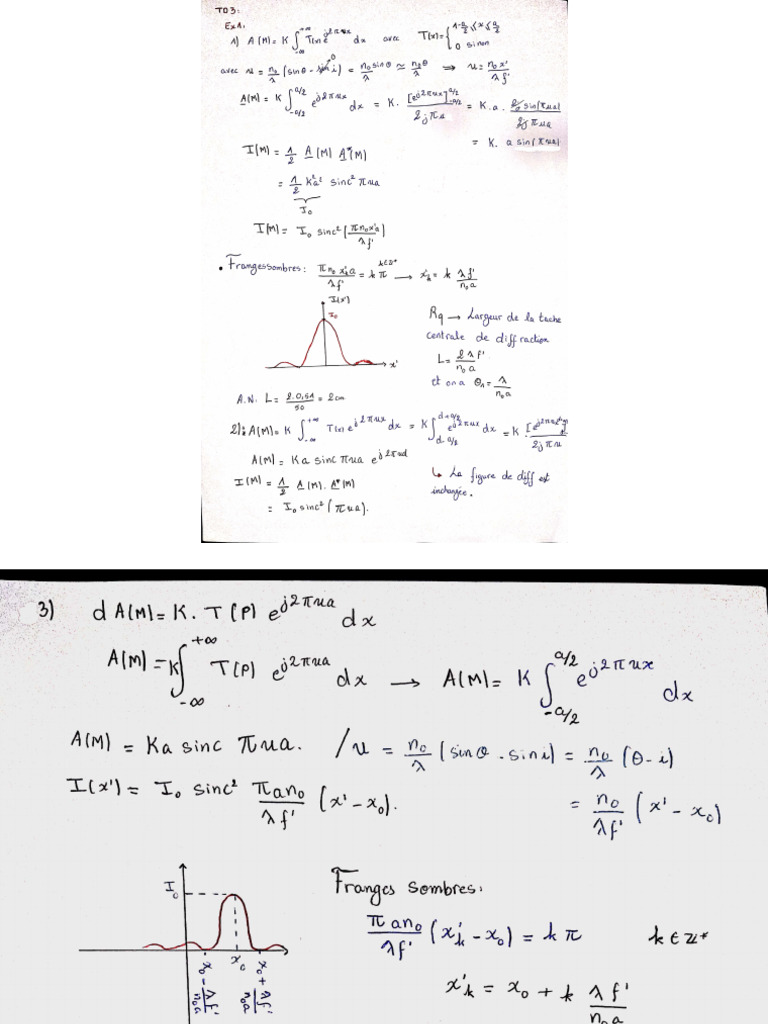 TD3:
Ex1.
1) A(M) = K ∫_{-∞}^{+∞} T(x) e^{j2πux} dx avec T(x) = { 1 -a/2 ≤ x ≤ a/2
0 sinon
avec u = n₀/λ (sinθ - sin i) = n₀ sinθ/λ ≃ n₀θ/λ ⟹ u = n₀x'/λf'
A(M) = K ∫_{-a/2}^{a/2} e^{j2πux} dx = K. [e^{j2πux}]_{-a/2}^{a/2} / 2jπu = K.a. 2j sin(πua) / 2jπua
= K. a sin(πua)
I(M) = 1/2 A(M) A*(M)
= 1/2 K²a² sinc² πua
I₀
I(M) = I₀ sinc² (πn₀x'a/λf')
• Franges sombres: πn₀x'ₖa/λf' = kπ k∈Z* → x'ₖ = k λf'/n₀a
I(x')
I₀
x'
Rq → Largeur de la tache
centrale de diffraction
L = 2λf'/n₀a
et on a θ₁ = λ/n₀a
A.N. L = 2.0,51/50 = 2cm
2): A(M) = K ∫_{-∞}^{+∞} T(x) e^{j2πux} dx = K ∫_{d-a/2}^{d+a/2} e^{j2πux} dx = K. [e^{j2πux}] / 2jπu
A(M) = Ka sinc πua e^{j2πud}
I(M) = 1/2 A(M). A*(M)
= I₀ sinc² (πua).
↳ La figure de diff est
inchangée.
3) dA(M) = K. T(P) e^{j2πua} dx
A(M) = K ∫_{-∞}^{+∞} T(P) e^{j2πua} dx → A(M) = K ∫_{-a/2}^{a/2} e^{j2πux} dx
A(M) = Ka sinc πua. / u = n₀/λ (sinθ - sin i) = n₀/λ (θ - i)
I(x') = I₀ sinc² πan₀/λf' (x' - x₀). = n₀/λf' (x' - x₀)
I₀
x₀ - λf'/n₀a
x₀
x₀ + λf'/n₀a
Franges sombres:
πan₀/λf' (x'ₖ - x₀) = kπ k∈Z*
x'ₖ = x₀ + k λf'/n₀a